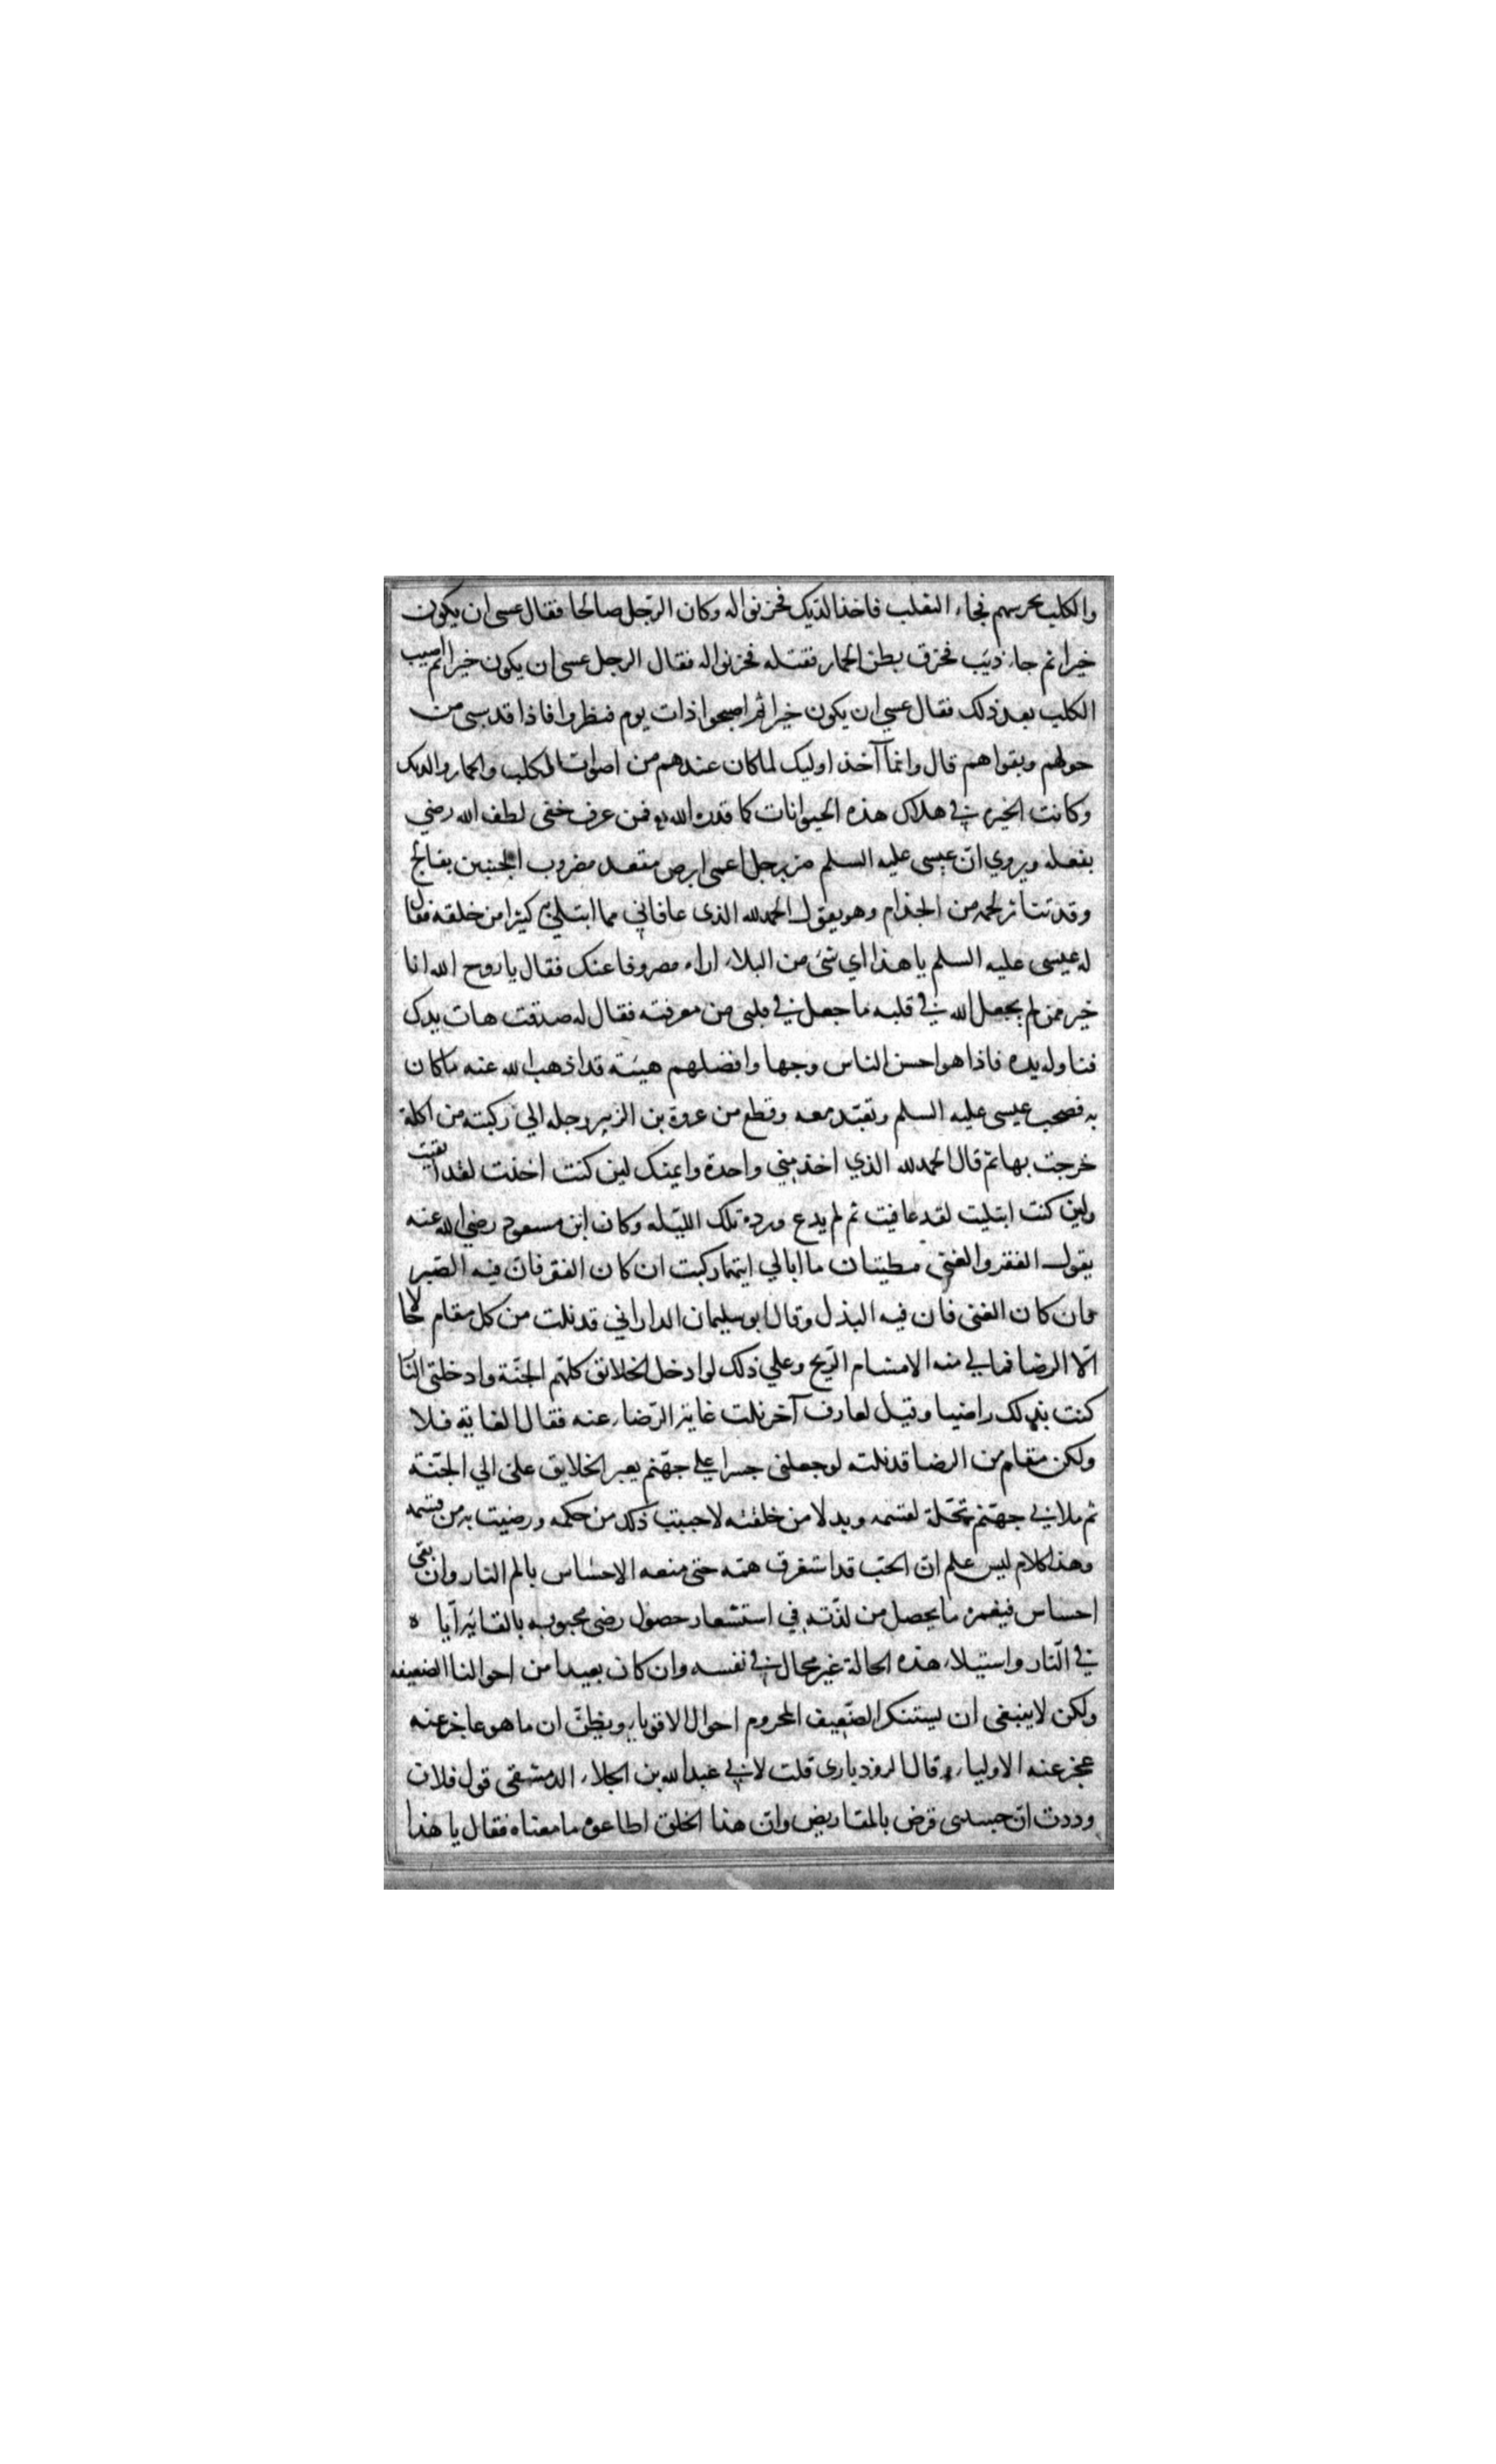 والكلب يحرسهم فجاء الثعلب فاخذ الديك فحزنوا له وكان الرّجل صالحا فقال عسى ان يكون
خيرا ثم جاء ذيب فخرق بطن الحمار فقتله فحزنوا له فقال الرجل عسى ان يكون خيرا ثم اصيب
الكلب بعد ذلك فقال عسى ان يكون خيرا ثم اصبحوا ذات يوم فنظروا فاذا قد سبى من
حولهم وبقوا هم قال وانما آخذ اوليك لما كان عندهم من اصوات الكلب والحمار والديك
وكانت الخيرة في هلاك هذه الحيوانات كما قدره الله فمن عرف خفى لطف الله رضي
بفعله ويروي انّ عيسى عليه السلم مر برجل اعمى ابرص مقعد مضروب الجنبين بفالج
وقد تناثر لحمه من الجذام وهو يقول الحمد لله الذى عافاني مما ابتلى به كثيرا من خلقه فقال
له عيسى عليه السلم يا هذا اي شئ من البلاء اراه مصروفا عنك فقال يا روح الله انا
خير ممن لم يجعل الله في قلبه ما جعل في قلبى من معرفته فقال له صدقت هات يدك
فناوله يده فاذا هو احسن الناس وجها وافضلهم هيئة قد اذهب الله عنه ما كان
به فصحب عيسى عليه السلم وتعبّد معه وقطع من عروة بن الزبير رجله الي ركبته من اكلة
خرجت بها ثمّ قال الحمد لله الذي اخذ مني واحدة وايمنك لين كنت اخذت لقد ابقيت
ولين كنت ابتليت لقد عافيت ثم لم يدع ورده تلك الليلة وكان ابن مسعود رضي الله عنه
يقول الفقر والغنى مطيتان ما ابالي ايتهما ركبت ان كان الفقر فان فيه الصّبر
وان كان الغنى فان فيه البذل وقال ابو سليمان الداراني قد نلت من كل مقام حالا
الّا الرضا فمالي منه الا مشام الرّيح وعلي ذلك لو ادخل الخلائق كلهم الجنّة وادخلنى النّا
كنت بذلك راضيا وقيل لعارف آخر نلت غاية الرّضاء عنه فقال الغاية فلا
ولكن مقام من الرضا قد نلته لو جعلنى جسرا على جهنم يعبر الخلايق على الي الجنّة
ثم ملا بي جهنم تحلّة لقسمه وبدلا من خلقته لاحببت ذلك من حكمه ورضيت به من قسمه
وهذا كلام ليس علم انّ الحبّ قد استغرق همّه حتى منعه الاحساس بالم النار وان بقى
احساس فيغمره ما يحصل من لذّته في استشعار حصول رضى محبوبه بالقائه ايّا ه
في النّار واستيلاء هذه الحالة غير محال في نفسه وان كان بعيدا من احوالنا الضعيفه
ولكن لا ينبغى ان يستنكر الضّعيف المحروم احوال الاقوياء ويظنّ ان ما هو عاجز عنه
عجز عنه الاولياء وقال الروذبارى قلت لابي عبد الله بن الجلاء الدمشقى قول فلان
وددت انّ جسدى قرض بالمقاريض وانّ هذا الخلق اطاعوه ما معناه فقال يا هذا